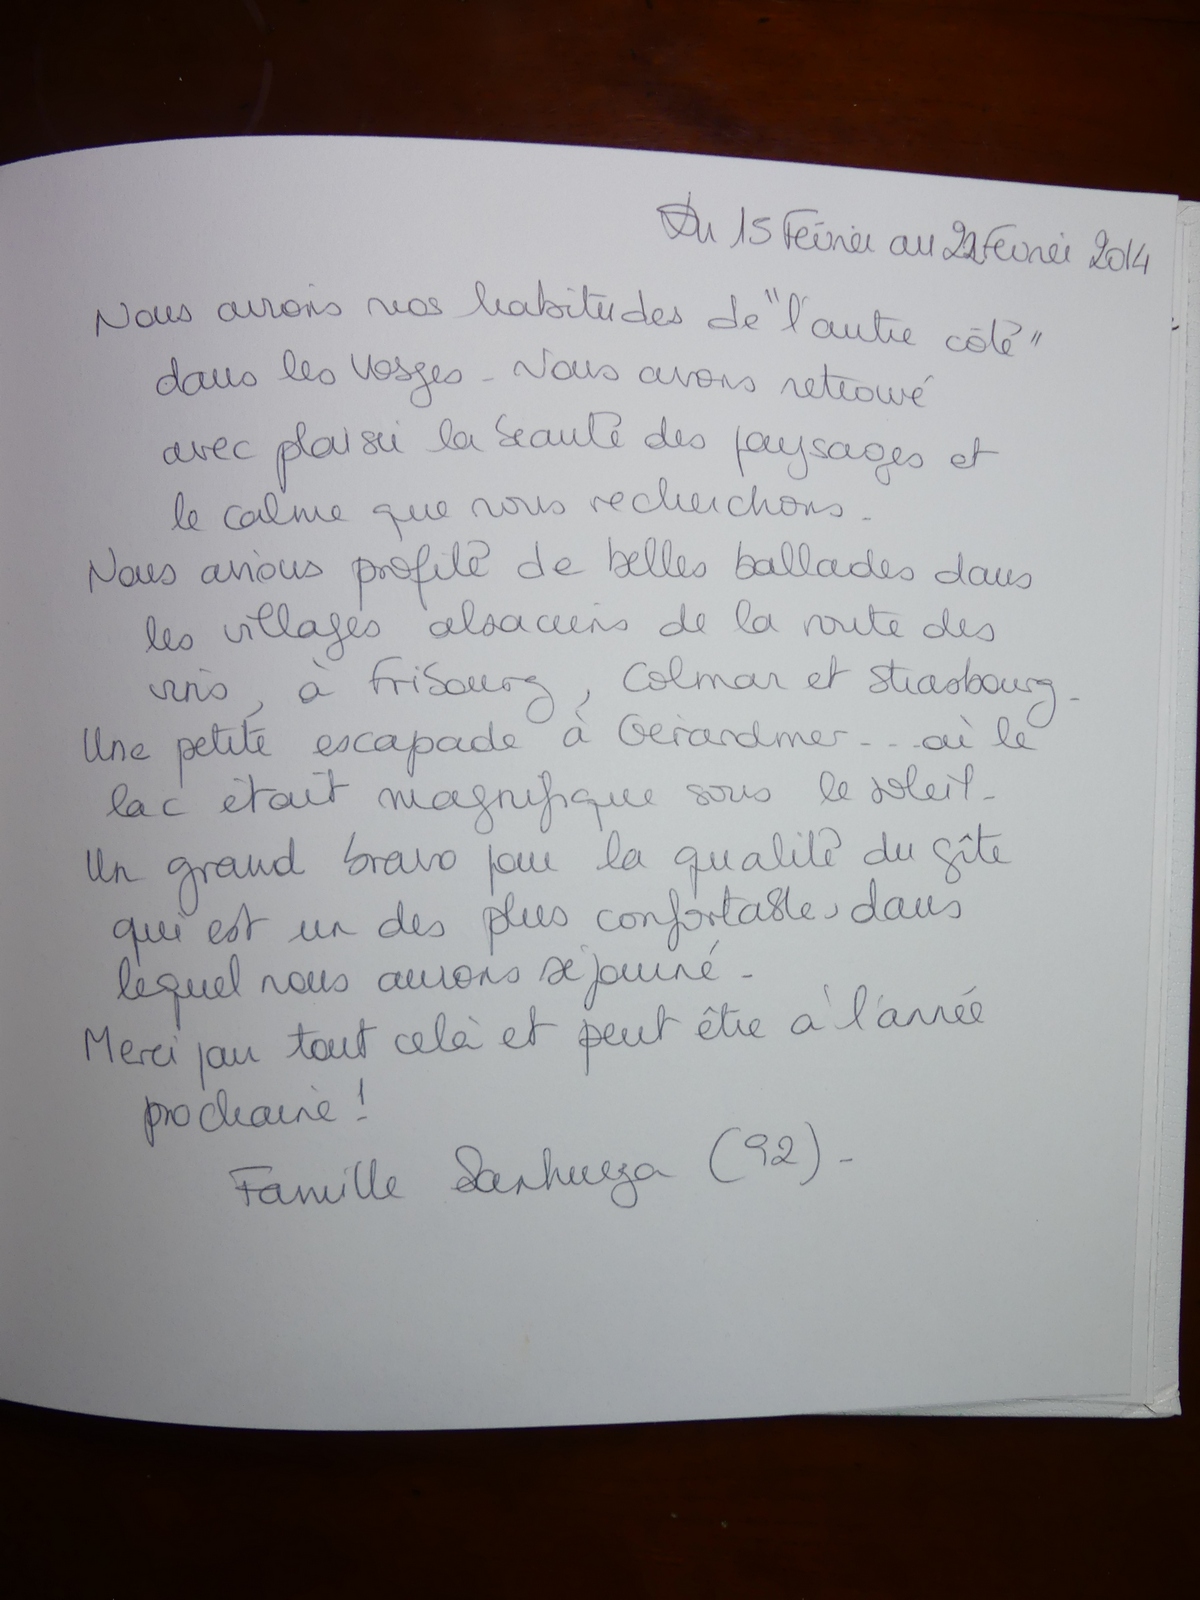 Du 15 Février au 22 Février 2014
Nous avions nos habitudes de "l'autre côté"
dans les Vosges - Nous avons retrouvé
avec plaisir la beauté des paysages et
le calme que nous recherchons.
Nous avions profité de belles ballades dans
les villages alsaciens de la route des
vins, à Fribourg, Colmar et Strasbourg.
Une petite escapade à Gérardmer... où le
lac était magnifique sous le soleil.
Un grand bravo pour la qualité du gîte
qui est un des plus confortables dans
lequel nous aurons séjourné -
Merci pour tout celà et peut être à l'année
prochaine !
Famille Sanhueza (92) -